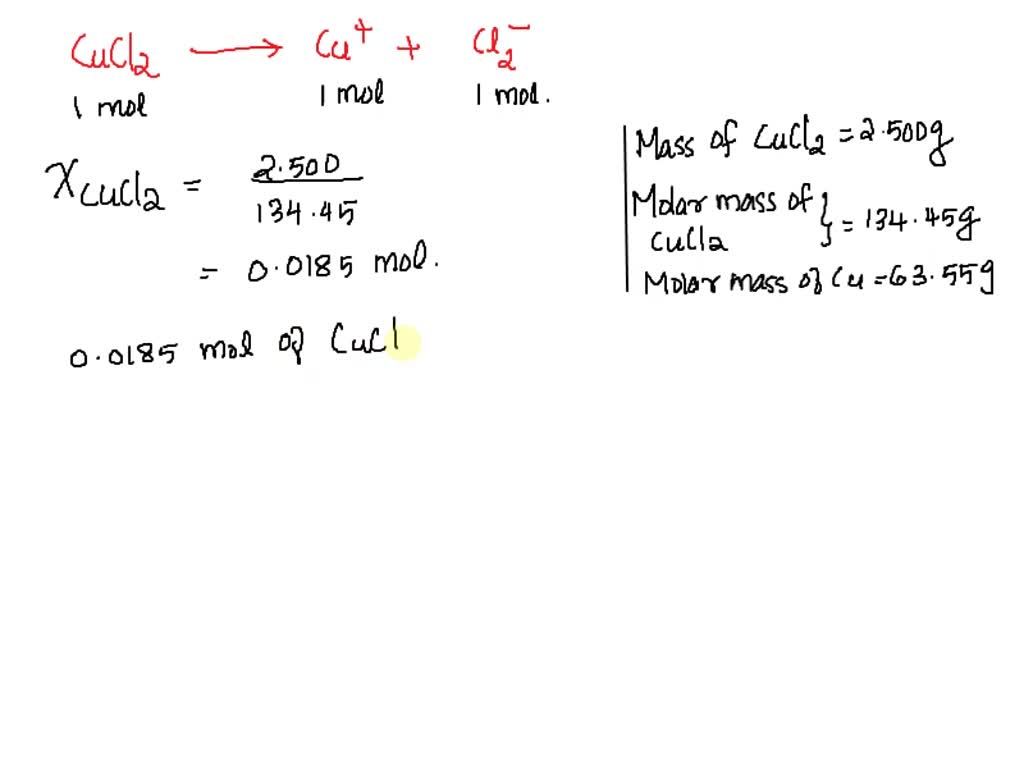 CuCl2 → Cu+ + Cl2-
1 mol 1 mol 1 mol.
XCuCl2 = 2.500 / 134.45
= 0.0185 mol.
0.0185 mol of CuCl
Mass of CuCl2 = 2.500g
Molar mass of CuCl2 } = 134.45g
Molar mass of Cu = 63.55g